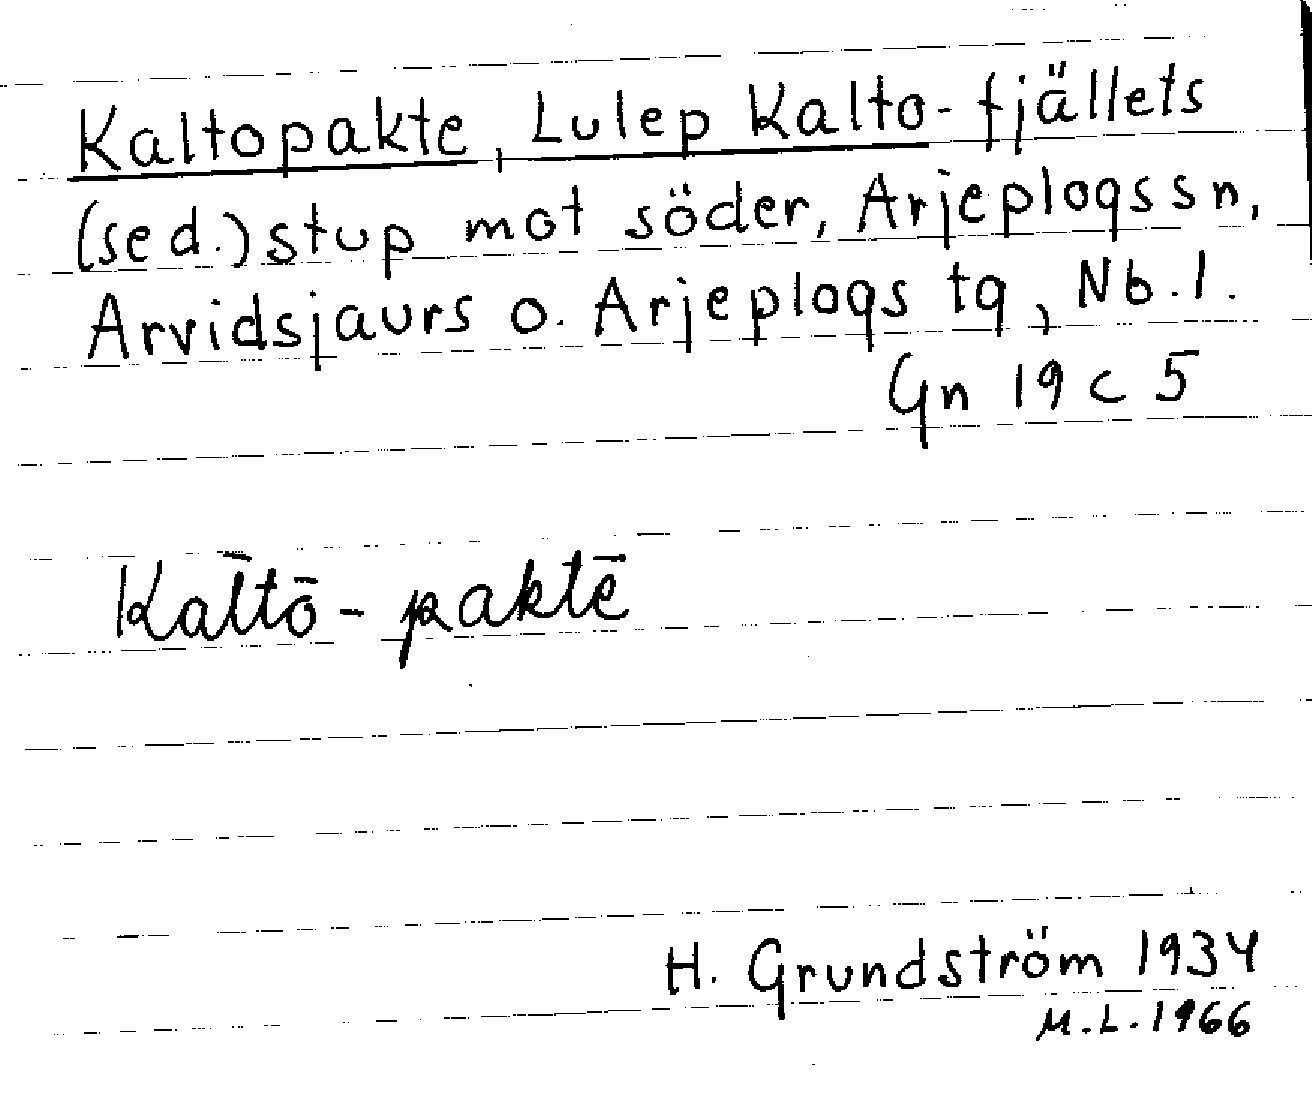 Kaltopakte, Lulep Kalto-fjällets
(sed.) stup mot söder, Arjeplogs sn,
Arvidsjaurs o. Arjeplogs tg, Nb.l.
Gn 19 c 5
Kāltō-paktē
H. Grundström 1934
M.L.1966